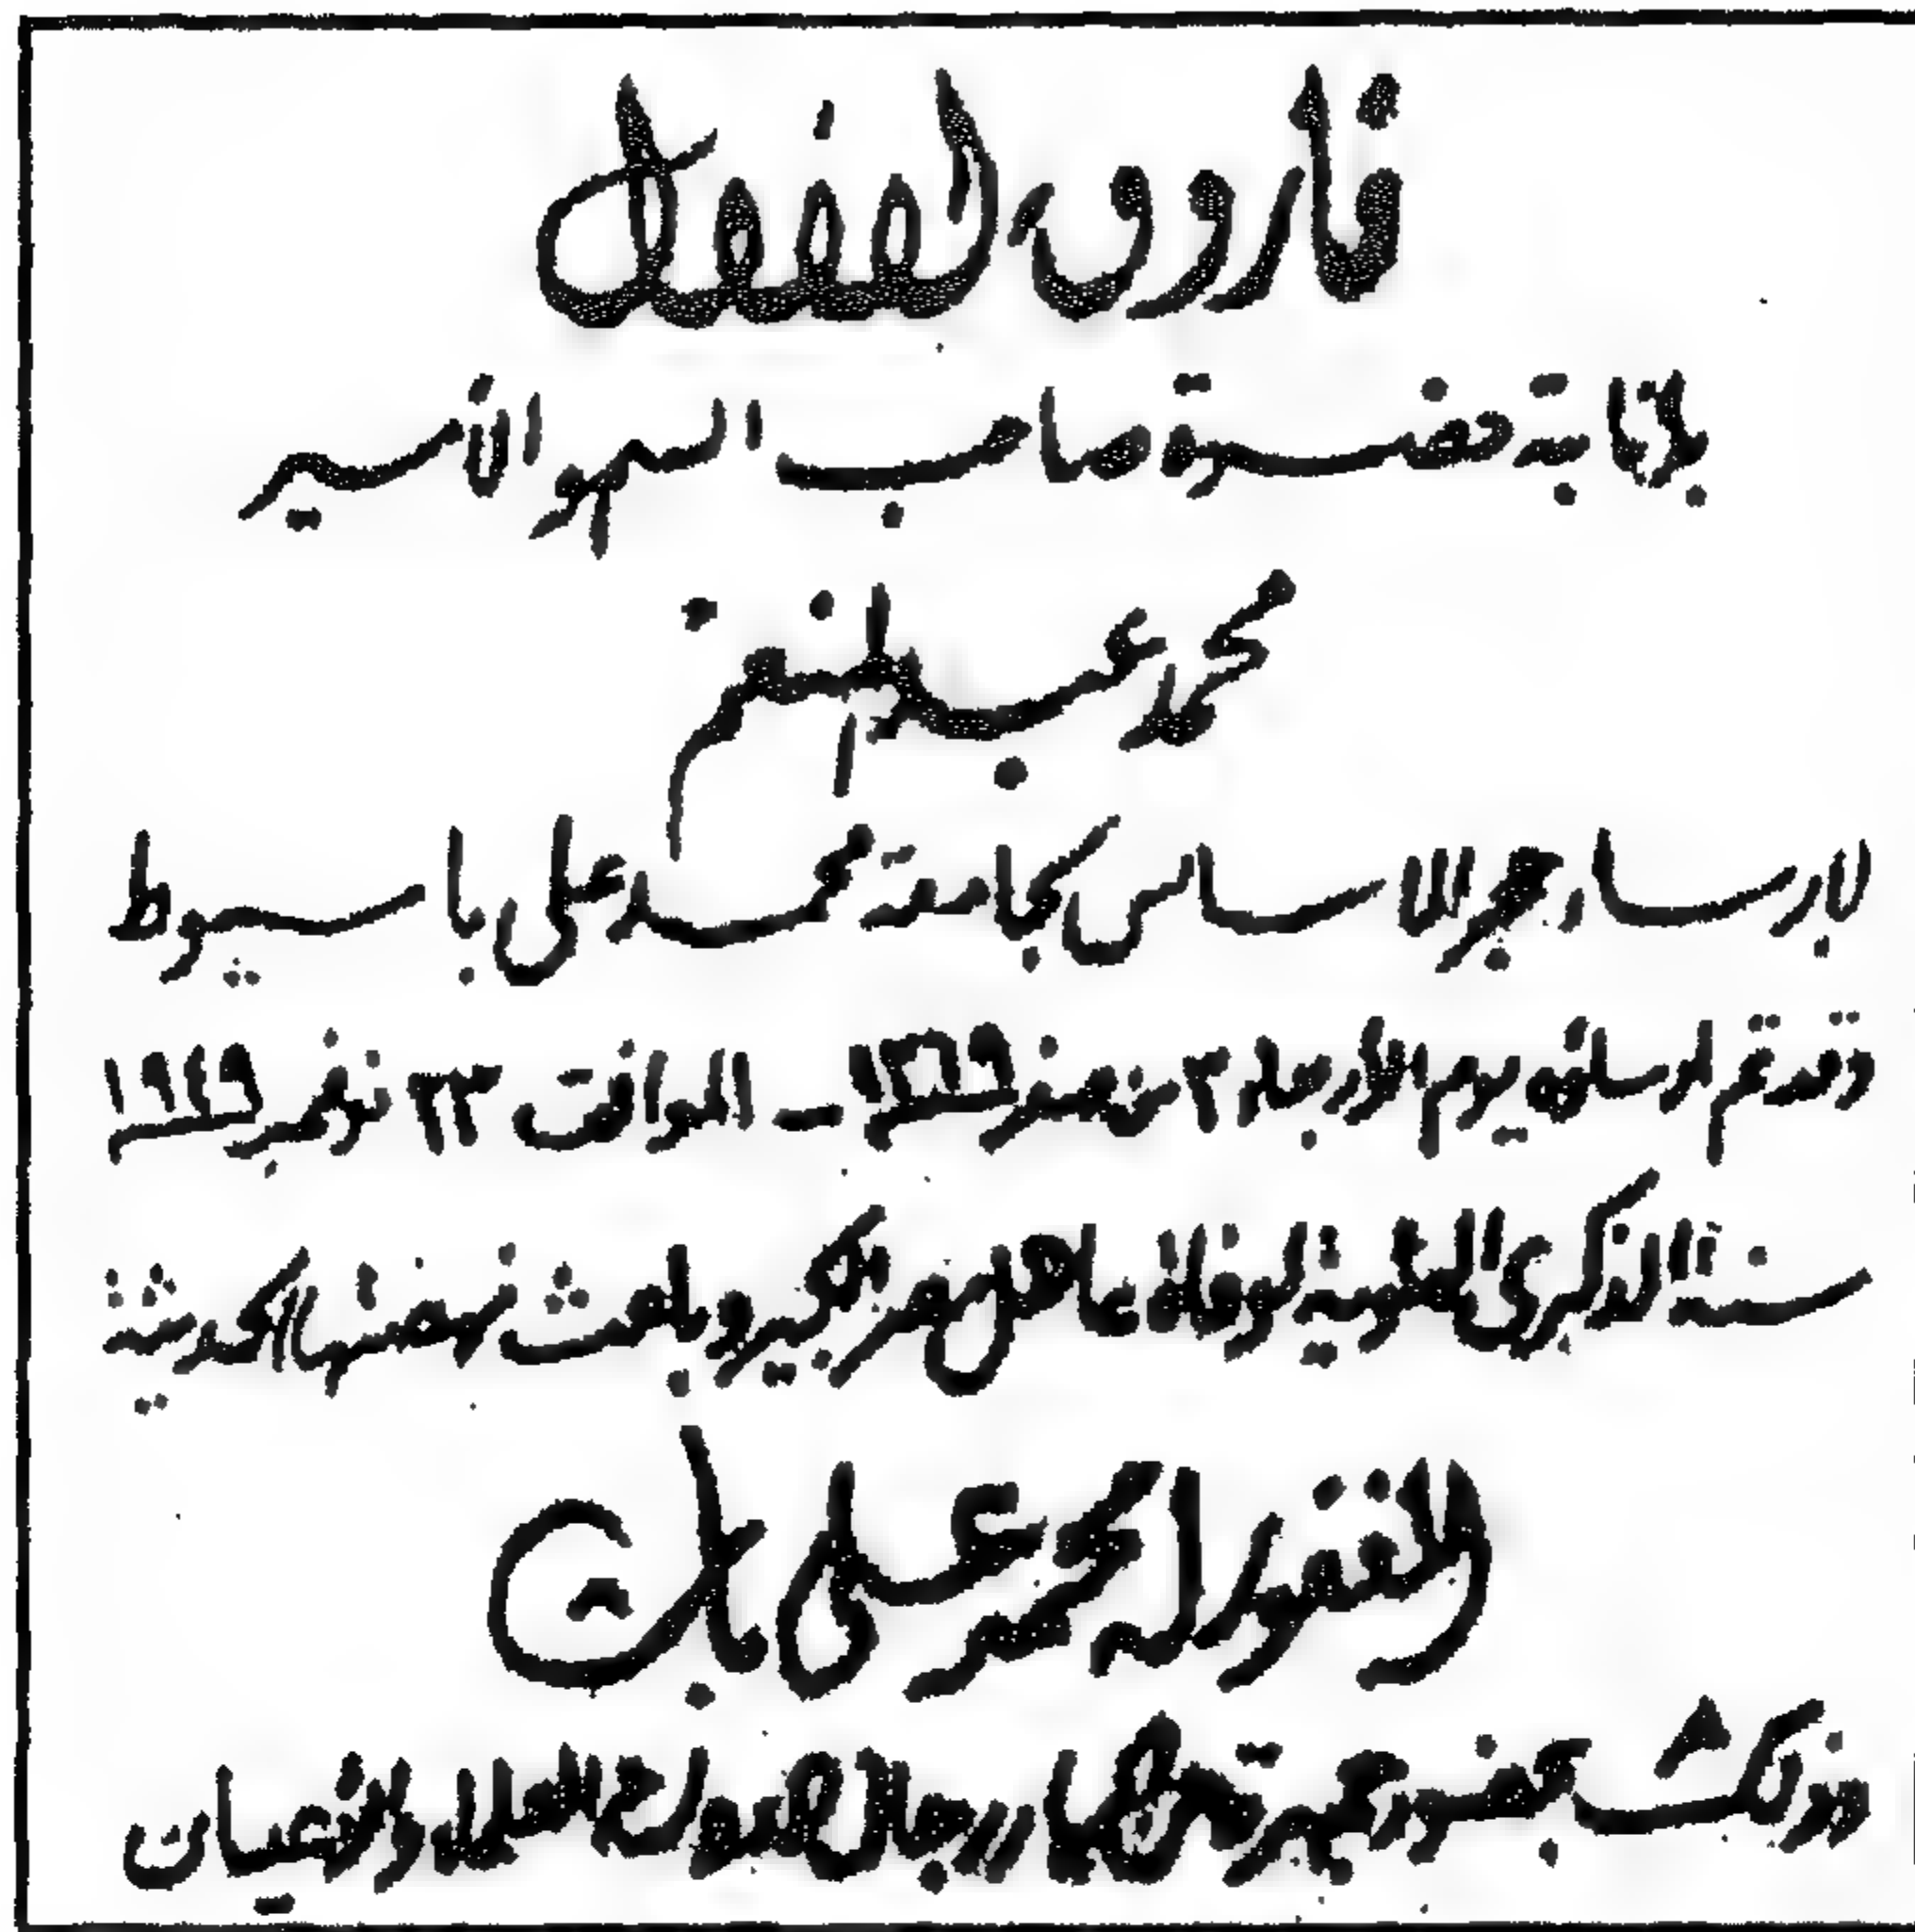 فاروق المفضل
بإنابة حضرة صاحب السمو الأمير
محمد عبد المنعم
لإرساء حجر الأساس لجامعة محمد على بأسيوط
وقد تم إرساؤه يوم الأربعاء ٣ من صفر ١٣٦٩ – الموافق ٢٣ نوفمبر ١٩٤٩
سنة الذكرى المئوية لوفاة عاهل مصر الكبير وباعث نهضتها الحديثة
المغفور له محمد على باشا
وذلك بحضور جمهرة من كبار رجال الدولة والعلماء والأعيان